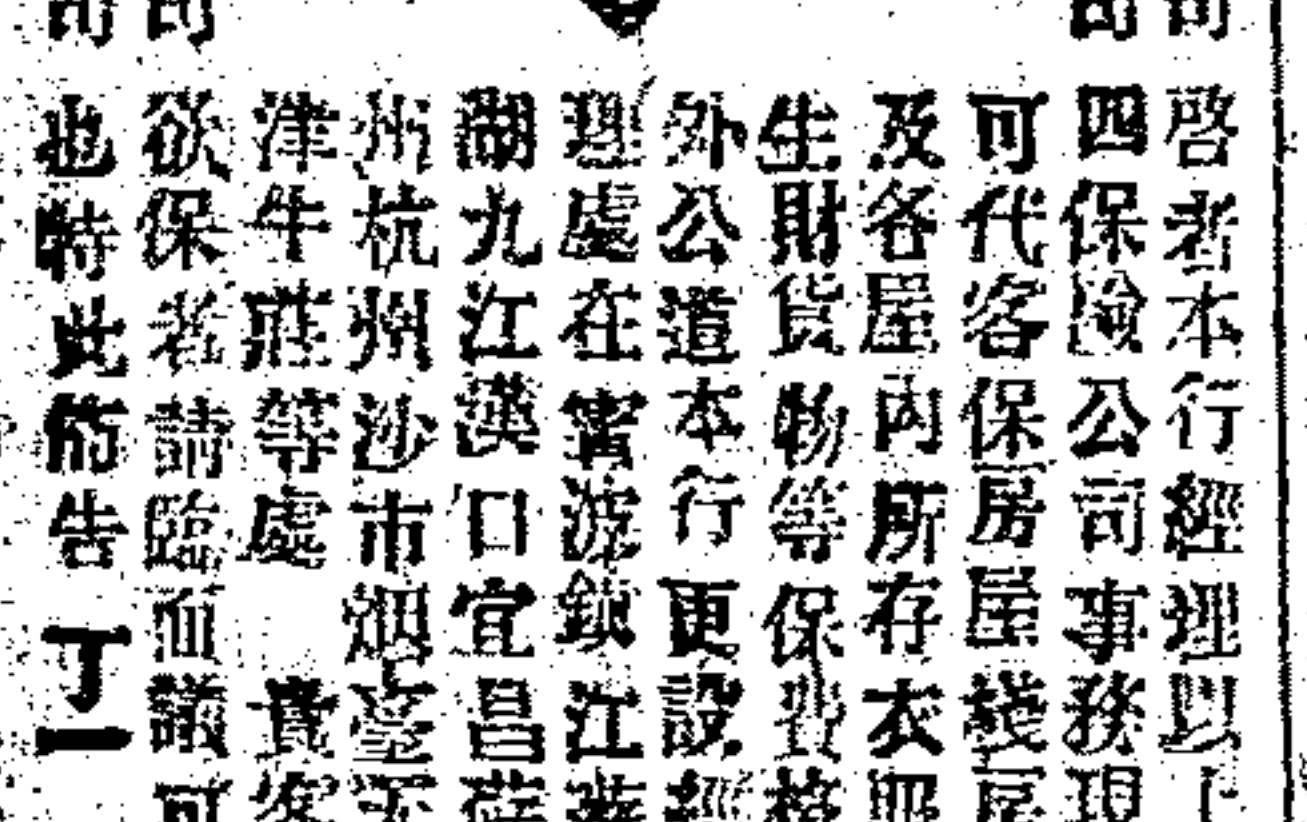 司啓者本行經理以上
司四保險公司事務現
可代客保房屋棧房
及各屋內所存衣服
生財貨物等保費格
外公道本行更設經
理處在寗波鎮江蕪
湖九江漢口宜昌蘇
州杭州沙市烟臺天
津牛莊等處 貴客
司欲保者請臨面議可
司也特此佈告 丁一